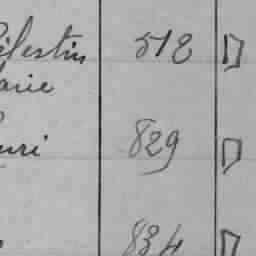 élestin 518 D
arie
uri 829 D
834 D